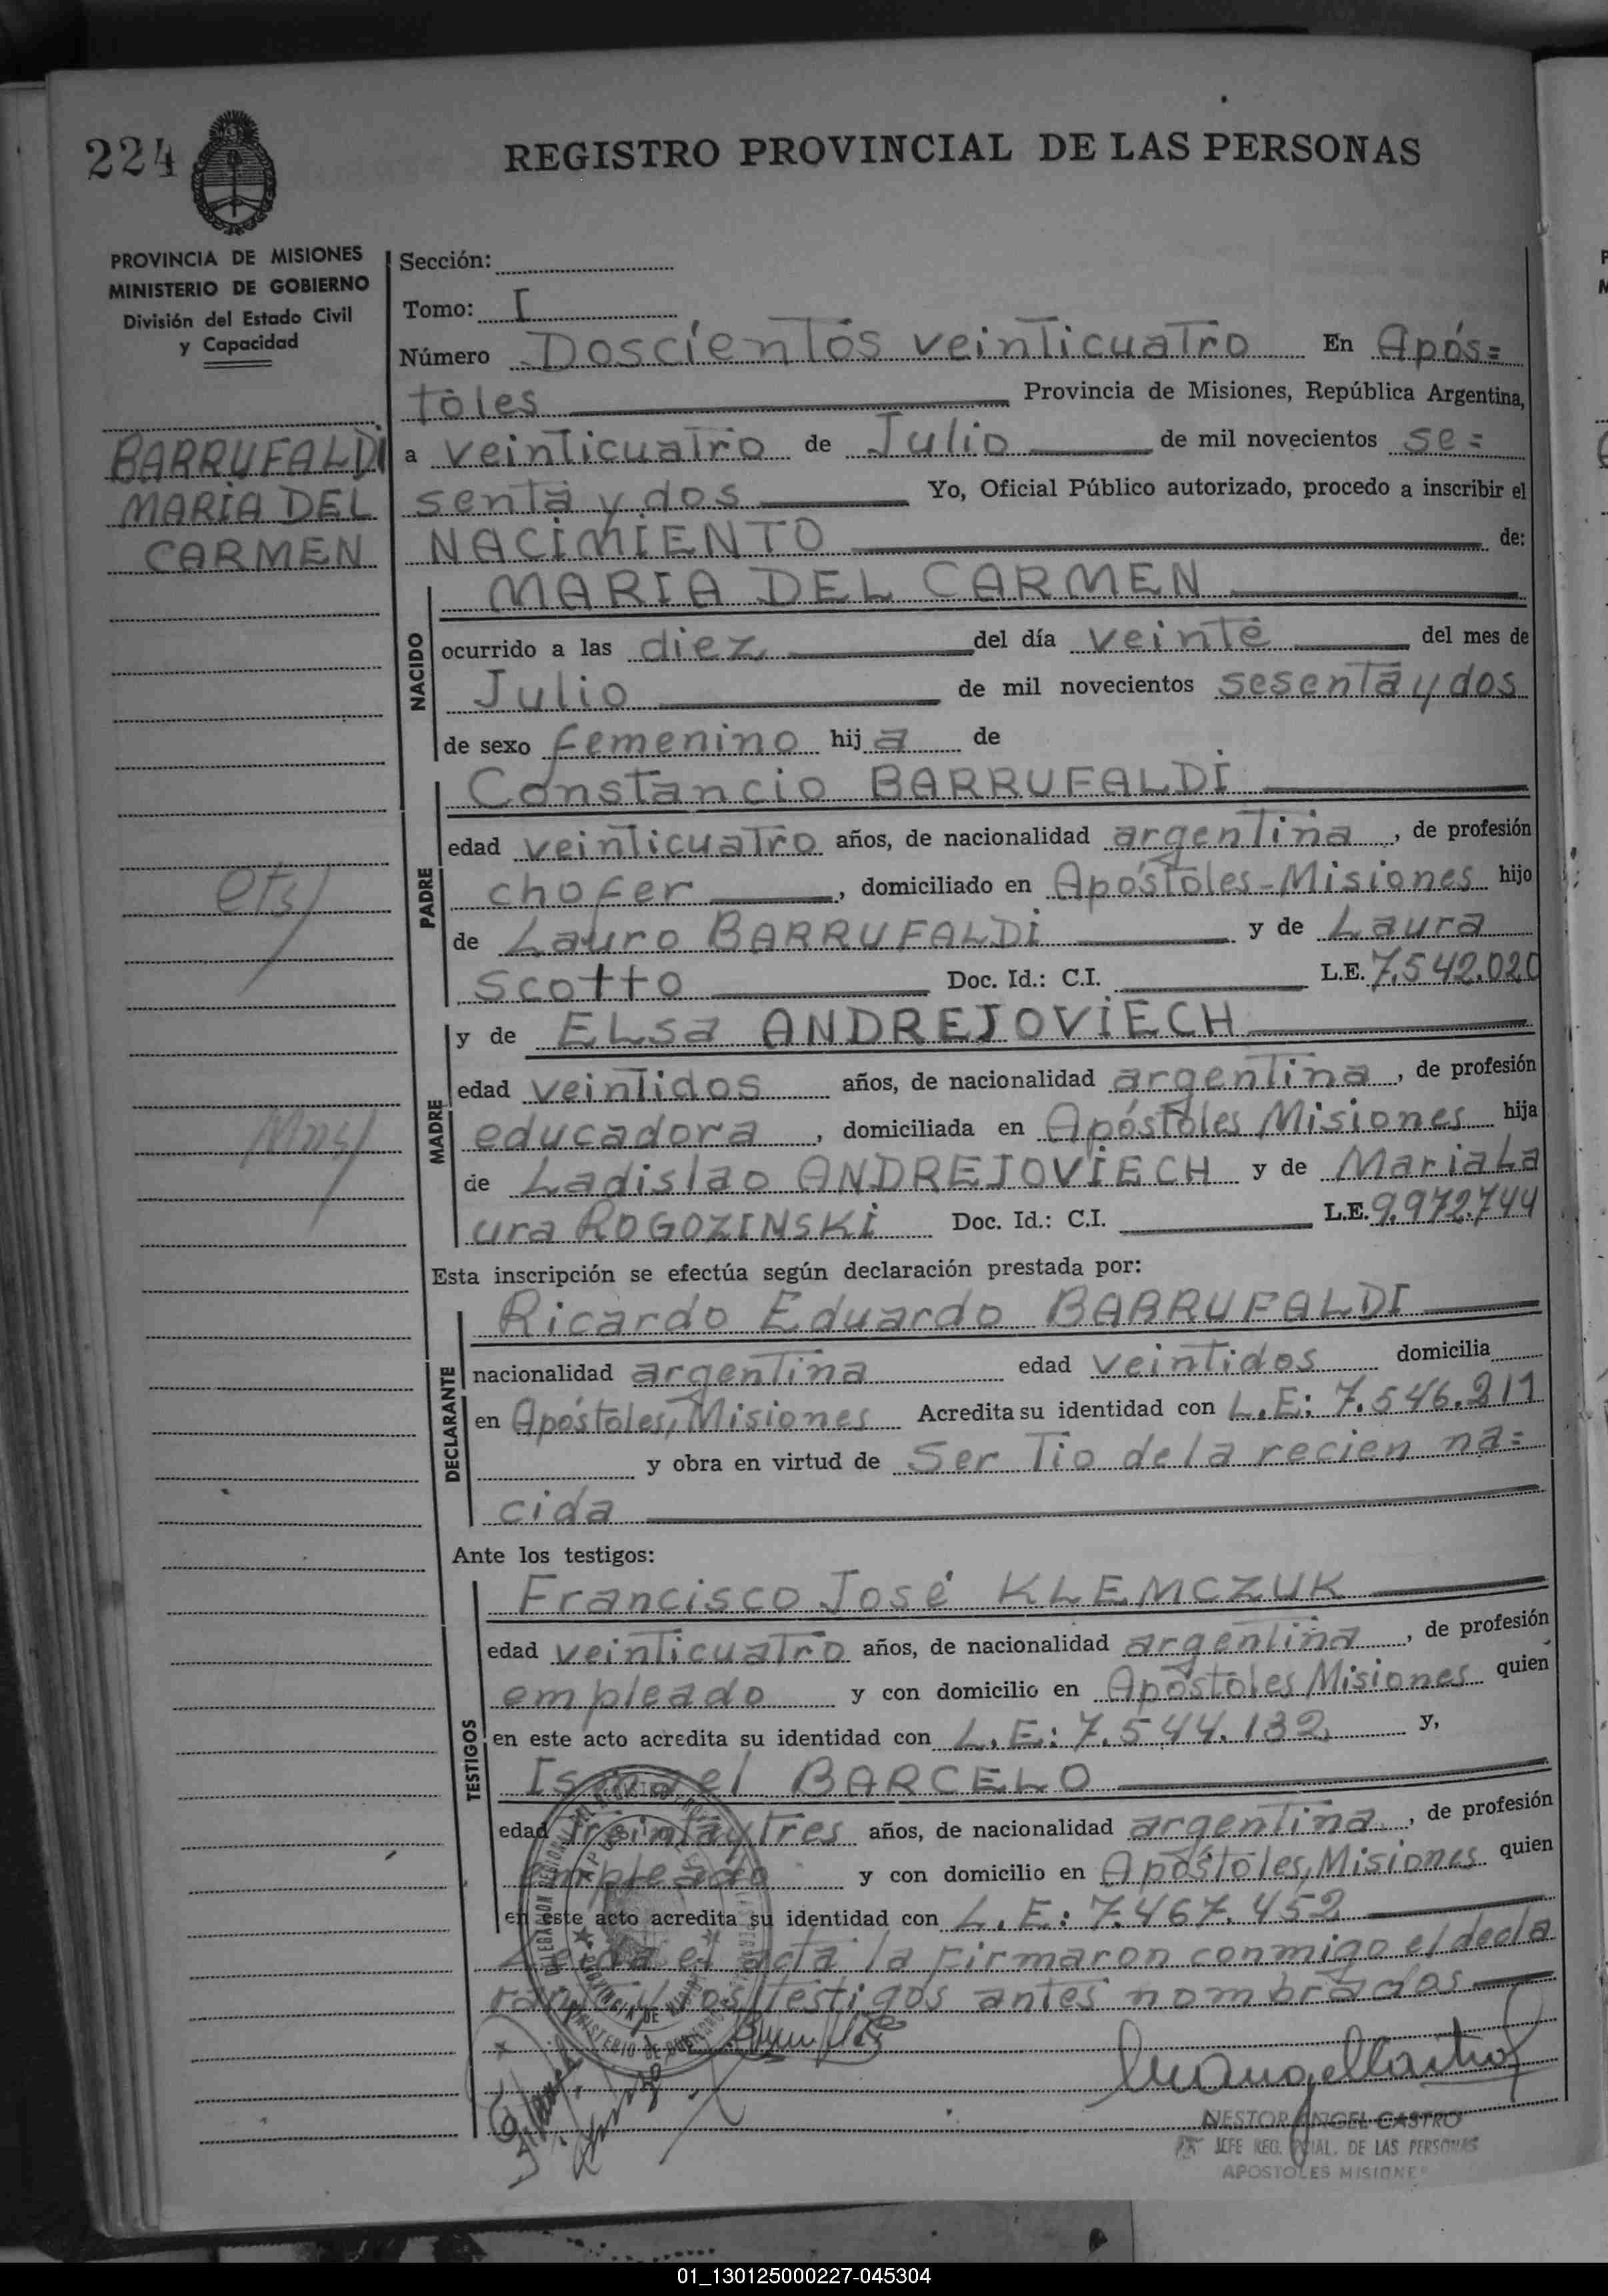 224
REGISTRO PROVINCIAL DE LAS PERSONAS
PROVINCIA DE MISIONES
MINISTERIO DE GOBIERNO
División del Estado Civil
y Capacidad
BARRUFALDI
MARIA DEL
CARMEN
Sección:
Tomo: I
Número Doscientos veinticuatro En Após=
toles Provincia de Misiones, República Argentina,
a veinticuatro de Julio de mil novecientos se=
senta y dos Yo, Oficial Público autorizado, procedo a inscribir el
NACIMIENTO de:
NACIDO
MARIA DEL CARMEN
ocurrido a las diez del día veinte del mes de
Julio de mil novecientos sesenta y dos
de sexo femenino hij a de
PADRE
Constancio BARRUFALDI
edad veinticuatro años, de nacionalidad argentina, de profesión
chofer, domiciliado en Apóstoles-Misiones hijo
de Lauro BARRUFALDI y de Laura
Scotto Doc. Id.: C.I. L.E. 7.542.020
MADRE
y de ELsa ANDREJOVIECH
edad veintidos años, de nacionalidad argentina, de profesión
educadora, domiciliada en Apóstoles Misiones hija
de Ladislao ANDREJOVIECH y de Maria La
ura ROGOZINSKI Doc. Id.: C.I. L.E. 9.972.744
Esta inscripción se efectúa según declaración prestada por:
DECLARANTE
Ricardo Eduardo BARRUFALDI
nacionalidad argentina edad veintidos domicilia
en Apóstoles, Misiones Acredita su identidad con L.E: 7.546.211
y obra en virtud de Ser Tio de la recien na=
cida
Ante los testigos:
TESTIGOS
Francisco José KLEMCZUK
edad veinticuatro años, de nacionalidad argentina, de profesión
empleado y con domicilio en Apóstoles, Misiones quien
en este acto acredita su identidad con L.E: 7.544.132 y,
BARCELO
edad treinta y tres años, de nacionalidad argentina, de profesión
empleado y con domicilio en Apóstoles, Misiones quien
en este acto acredita su identidad con L.E: 7.467.452
Leida el acta la firmaron conmigo el decla
rante y los testigos antes nombrados
NESTOR ANGEL CASTRO
JEFE REG. PCIAL. DE LAS PERSONAS
APOSTOLES MISIONES
01_130125000227-045304